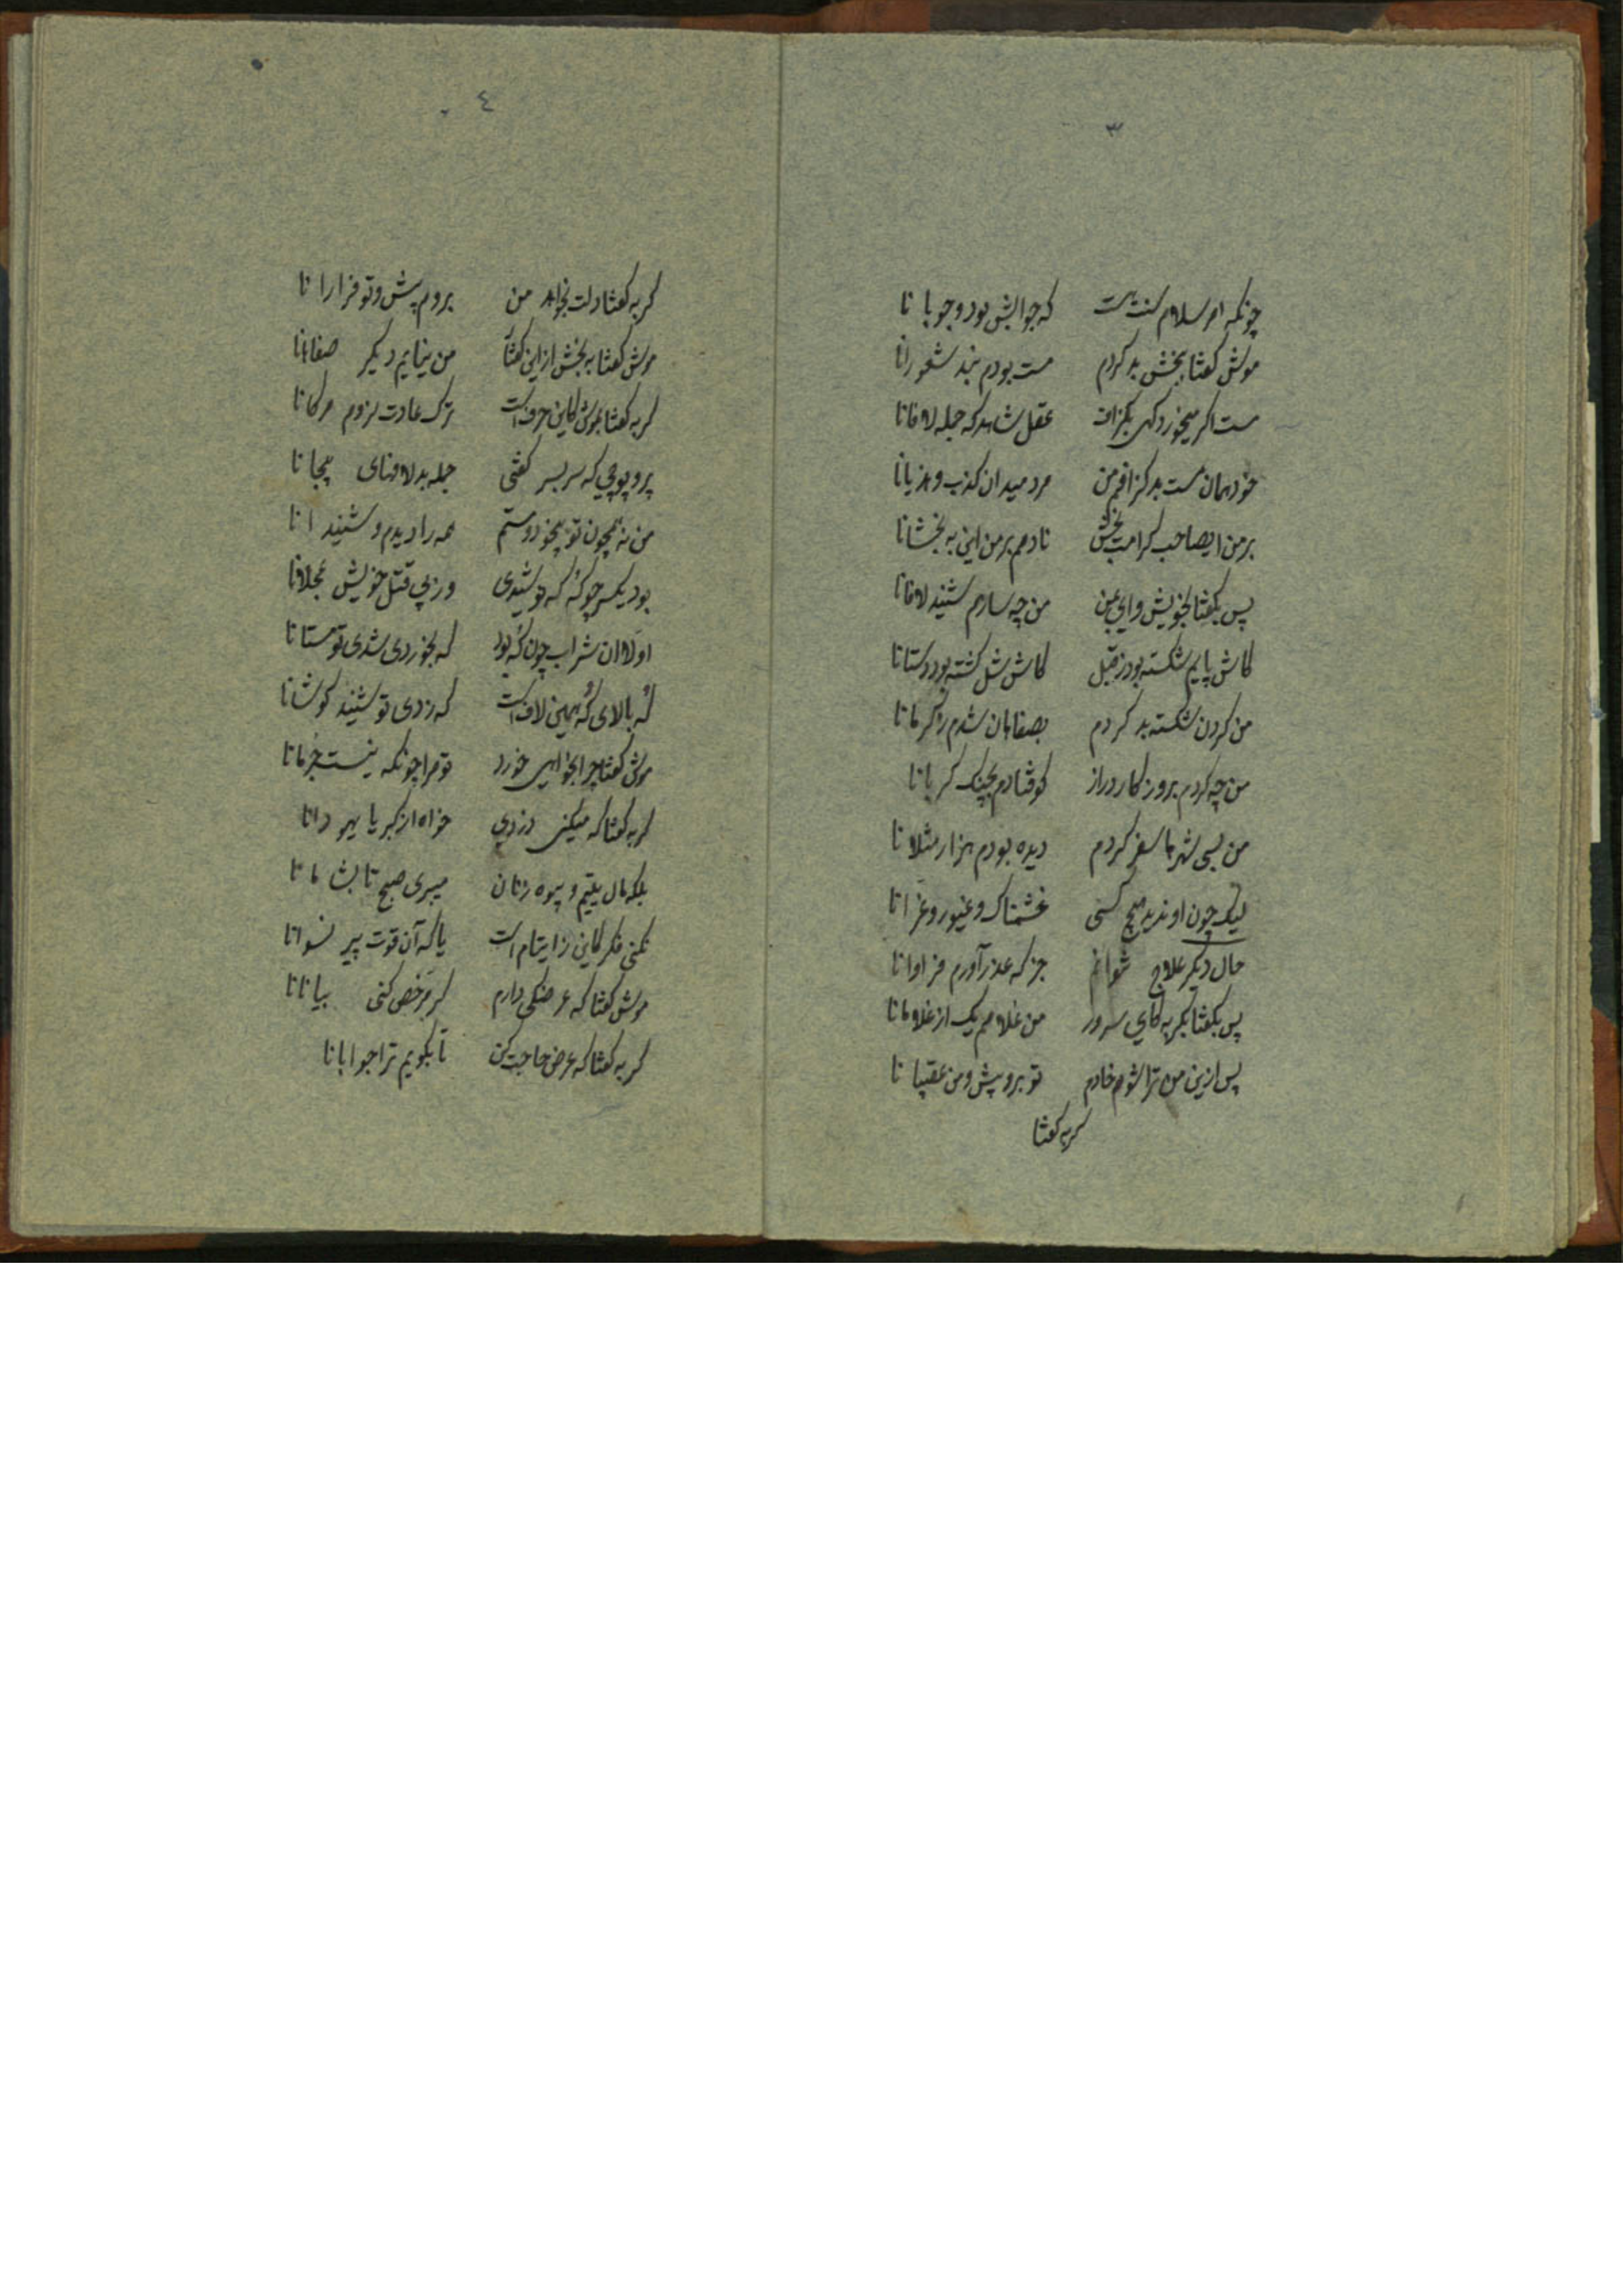 ۳
چونکه امر سلام سنت هست که جوابش بود وجوبا نا
موش گفتا ببخش بد کردم مست بودم نبد شعورانا
مست اگر میخورد گهی بگزاف عقل شاهد که جمله لافانا
خود همان مست بد گزافم من مرد میدان کذب و هذیانا
بر من ایصاحب کرامت بخش نادمم بر من این به بخشانا
پس بگفتا بخویش وای بمن من چه سازم شنید لافانا
کاش پایم شکسته بود ز قبل کاش شل گشته بود دستانا
من گردن شکسته بد کردم بصفاهان شدم ز کرمانا
من چه کردم بروزکار دراز کوفتادم بچنگ گربانا
من بسی شهرها سفر کردم دیده بودم هزار مثلانا
لیک چون او ندید هیچ کسی خشمناک و غیور و غرانا
حال دیگر علاج نتوانم جز که عذر آورم فراوانا
پس بگفتا بگربه کای سرور من غلامم یک از غلامانا
پس ازین من ترا شوم خادم تو برو پیش و من عقیبانا
گربه گفتا
٤
گربه گفتا دلت بخواهد من بروم پیش و تو فرارانا
موش گفتا به بخش از این گفتا من نیایم دیگر صفاهانا
گربه گفتا بموش کاین حرف است ترک عادت لزوم مرگانا
پر و پوچی که سربسر گفتی جمله بد لافهای بیجانا
من نه همچون تو بیخود و مستم همه را دیدم و شنیدانا
بود یکسر چو گه که نوشیدی در پی قتل خویش عجلانا
اولا ان شراب چون گه بود که بخوردی شدی تو مستانا
گه بالای گه همین لاف است که زدی تو شنید گوشانا
موش گفتا چرا بخواهی خورد تو مرا چونکه نیست جرمانا
گربه گفتا که میکنی دزدی خواه از گبر یا یهودانا
بلکه مال یتیم و بیوه زنان میبری صبح تا بشامانا
نکنی فکر کاین ز ایتام است یا که آن قوت پیر نسوانا
موش گفتا که عرضکی دارم گر مرخص کنی بیانانا
گربه گفتا که عرض حاجت کن تا بگویم ترا جوابانا